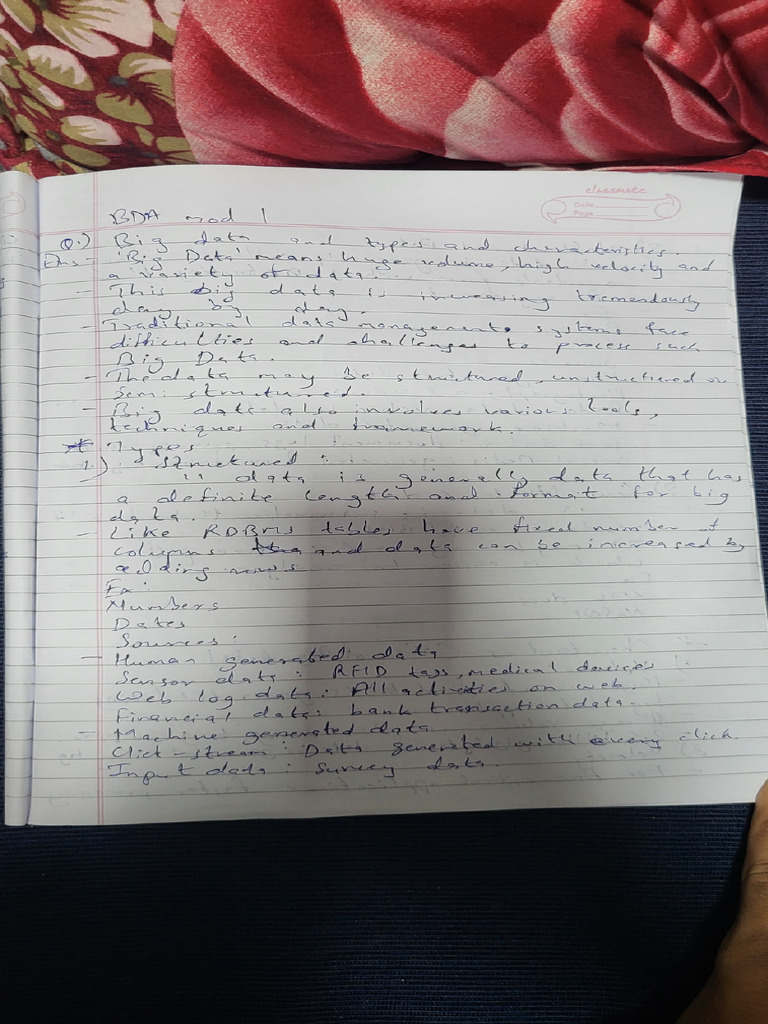 classmate
Date
Page
BDA mod 1
Q.) Big data and types and characteristics.
Ans - 'Big Data' means huge volume, high velocity and
a variety of data.
- This big data is increasing tremendously
day by day.
- Traditional data managements systems face
difficulties and challenges to process such
Big Data.
- The data may be structured, unstructured or
semi structured.
- Big data also involves various tools,
techniques and framework.
* Types
1.) Structured :
- " data is generally data that has
a definite length and format for big
data.
- Like RDBMS tables have fixed number of
columns and data can be increased by
adding rows
Ex:
Numbers
Dates
Sources:
- Human generated data
Sensor data : RFID tags, medical devices
Web log data : All activities on web.
Financial data: bank transaction data.
- Machine generated data
Click-stream : Data generated with every click.
Input data : Survey data.